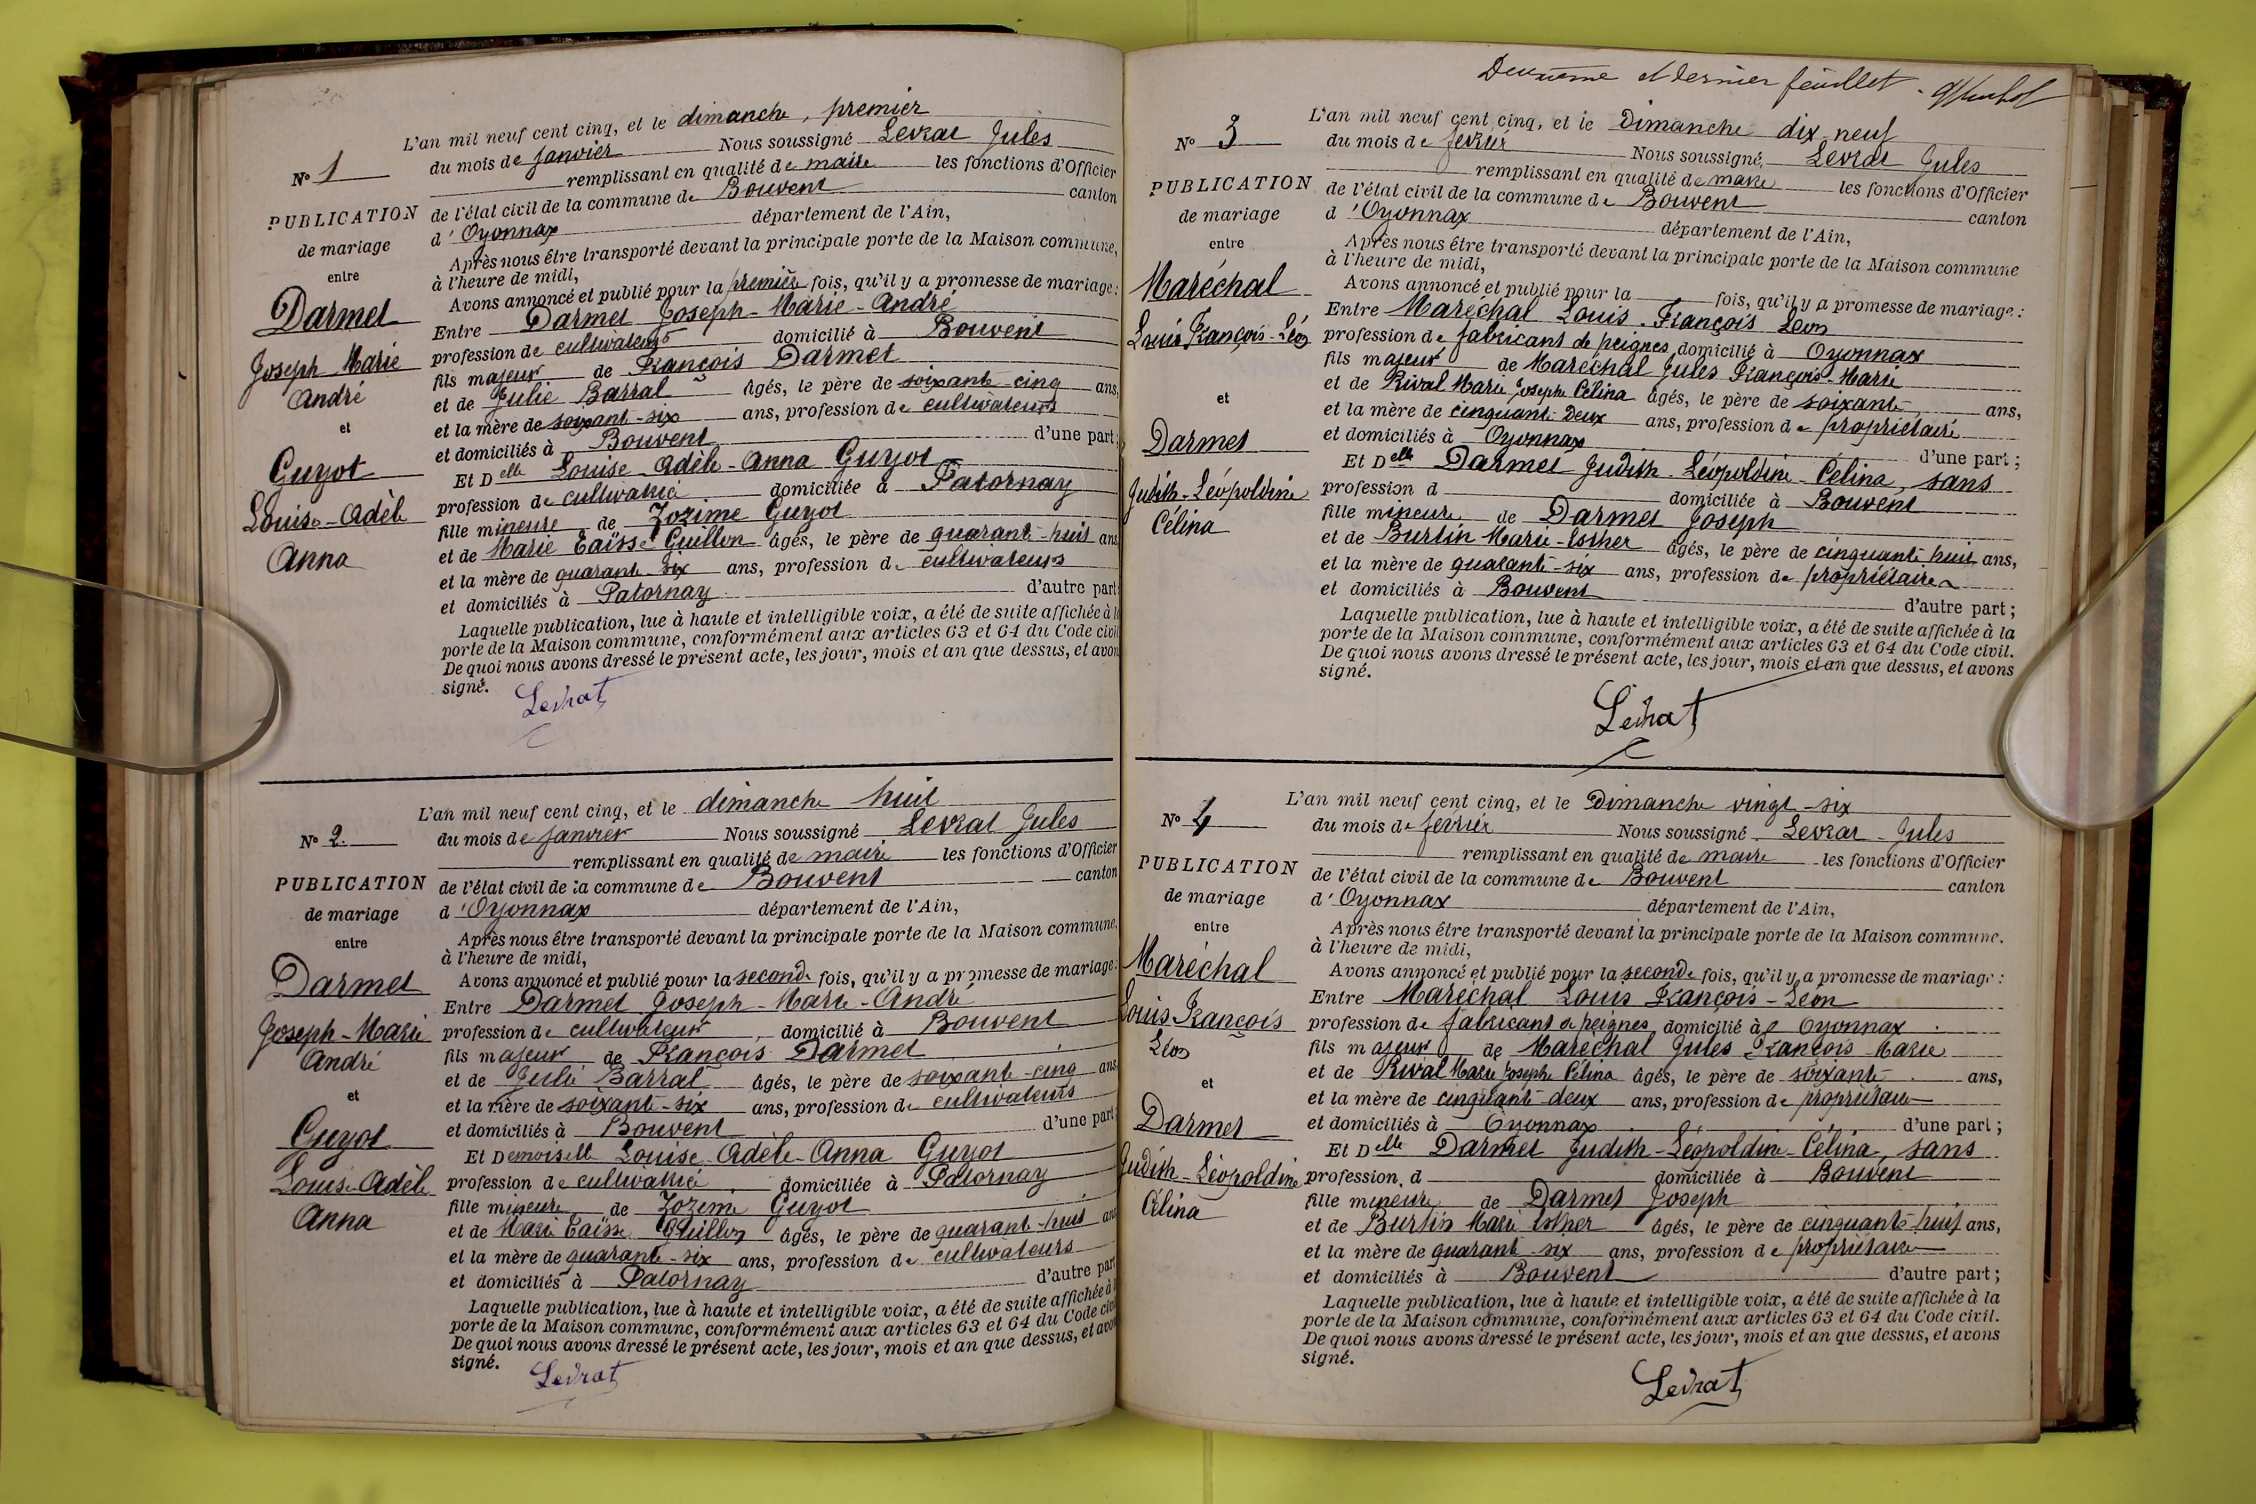 N° 1
PUBLICATION
de mariage
entre
Darmet
Joseph Marie
André
et
Guyot
Louise-Adèle
Anna
L'an mil neuf cent cinq, et le dimanche, premier
du mois de janvier Nous soussigné Levrat Jules
remplissant en qualité de maire les fonctions d'Officier
de l'état civil de la commune de Bouvent canton
d'Oyonnax département de l'Ain,
Après nous être transporté devant la principale porte de la Maison commune,
à l'heure de midi,
Avons annoncé et publié pour la première fois, qu'il y a promesse de mariage :
Entre Darmet Joseph-Marie-André
profession de cultivateur domicilié à Bouvent
fils majeur de François Darmet
et de Julie Barral âgés, le père de soixante-cinq ans,
et la mère de soixante-six ans, profession de cultivateurs
et domiciliés à Bouvent d'une part ;
Et Delle Louise-Adèle-Anna Guyot
profession de cultivatrice domiciliée à Patornay
fille mineure de Zozime Guyot
et de Marie Taïsse Guillon âgés, le père de quarante-huit ans
et la mère de quarante-six ans, profession de cultivateurs
et domiciliés à Patornay d'autre part
Laquelle publication, lue à haute et intelligible voix, a été de suite affichée à la
porte de la Maison commune, conformément aux articles 63 et 64 du Code civil
De quoi nous avons dressé le présent acte, les jour, mois et an que dessus, et avon
signé.
Levrat
N° 2.
PUBLICATION
de mariage
entre
Darmet
Joseph-Marie
André
et
Guyot
Louise-Adèle
Anna
L'an mil neuf cent cinq, et le dimanche huit
du mois de janvier Nous soussigné Levrat Jules
remplissant en qualité de maire les fonctions d'Officier
de l'état civil de la commune de Bouvent canton
d'Oyonnax département de l'Ain,
Après nous être transporté devant la principale porte de la Maison commune,
à l'heure de midi,
Avons annoncé et publié pour la seconde fois, qu'il y a promesse de mariage :
Entre Darmet Joseph-Marie-André
profession de cultivateur, domicilié à Bouvent
fils majeur de François Darmet
et de Julie Barral âgés, le père de soixante-cinq ans
et la mère de soixante-six ans, profession de cultivateurs
et domiciliés à Bouvent d'une part ;
Et Demoiselle Louise-Adèle-Anna Guyot
profession de cultivatrice domiciliée à Patornay
fille mineure de Zozime Guyot
et de Marie Taïsse Guillon âgés, le père de quarante-huit ans
et la mère de quarante-six ans, profession de cultivateurs
et domiciliés à Patornay d'autre part
Laquelle publication, lue à haute et intelligible voix, a été de suite affichée à l
porte de la Maison commune, conformément aux articles 63 et 64 du Code civil
De quoi nous avons dressé le présent acte, les jour, mois et an que dessus, et avon
signé.
Levrat
Deuxième et dernier feuillet.
N° 3
PUBLICATION
de mariage
entre
Maréchal
Louis François-Léon
et
Darmet
Judith-Léopoldine
Célina
L'an mil neuf cent cinq, et le Dimanche dix neuf
du mois de février Nous soussigné, Levrat Jules
remplissant en qualité de maire les fonctions d'Officier
de l'état civil de la commune de Bouvent
d'Oyonnax canton
département de l'Ain,
Après nous être transporté devant la principale porte de la Maison commune
à l'heure de midi,
Avons annoncé et publié pour la fois, qu'il y a promesse de mariage :
Entre Maréchal Louis-François Léon
profession de fabricant de peignes domicilié à Oyonnax
fils majeur de Maréchal Jules François-Marie
et de Rival Marie Josephe Célina âgés, le père de soixante ans,
et la mère de cinquante-deux ans, profession de propriétaire
et domiciliés à Oyonnax d'une part ;
Et Delle Darmet Judith-Léopoldine-Célina, sans
profession d domiciliée à Bouvent
fille mineure de Darmet Joseph
et de Burtin Marie-Esther âgés, le père de cinquante-huit ans,
et la mère de quarante-six ans, profession de propriétaires
et domiciliés à Bouvent d'autre part ;
Laquelle publication, lue à haute et intelligible voix, a été de suite affichée à la
porte de la Maison commune, conformément aux articles 63 et 64 du Code civil.
De quoi nous avons dressé le présent acte, les jour, mois et an que dessus, et avons
signé.
Levrat
N° 4
PUBLICATION
de mariage
entre
Maréchal
Louis François
Léon
et
Darmet
Judith-Léopoldine
Célina
L'an mil neuf cent cinq, et le Dimanche vingt-six
du mois de février Nous soussigné Levrat-Jules
remplissant en qualité de maire les fonctions d'Officier
de l'état civil de la commune de Bouvent canton
d'Oyonnax département de l'Ain,
Après nous être transporté devant la principale porte de la Maison commune.
à l'heure de midi,
Avons annoncé et publié pour la seconde fois, qu'il y a promesse de mariage :
Entre Maréchal Louis François-Léon
profession de fabricant de peignes domicilié à Oyonnax
fils majeur de Maréchal Jules François Marie
et de Rival Marie Josephe Célina âgés, le père de soixante ans,
et la mère de cinquante-deux ans, profession de propriétaire
et domiciliés à Oyonnax d'une part ;
Et Delle Darmet Judith-Léopoldine-Célina, sans
profession, d domiciliée à Bouvent
fille mineure de Darmet Joseph
et de Burtin Marie Esther âgés, le père de cinquante-huit ans,
et la mère de quarante-six ans, profession de propriétaire
et domiciliés à Bouvent d'autre part ;
Laquelle publication, lue à haute et intelligible voix, a été de suite affichée à la
porte de la Maison commune, conformément aux articles 63 et 64 du Code civil.
De quoi nous avons dressé le présent acte, les jour, mois et an que dessus, et avons
signé.
Levrat